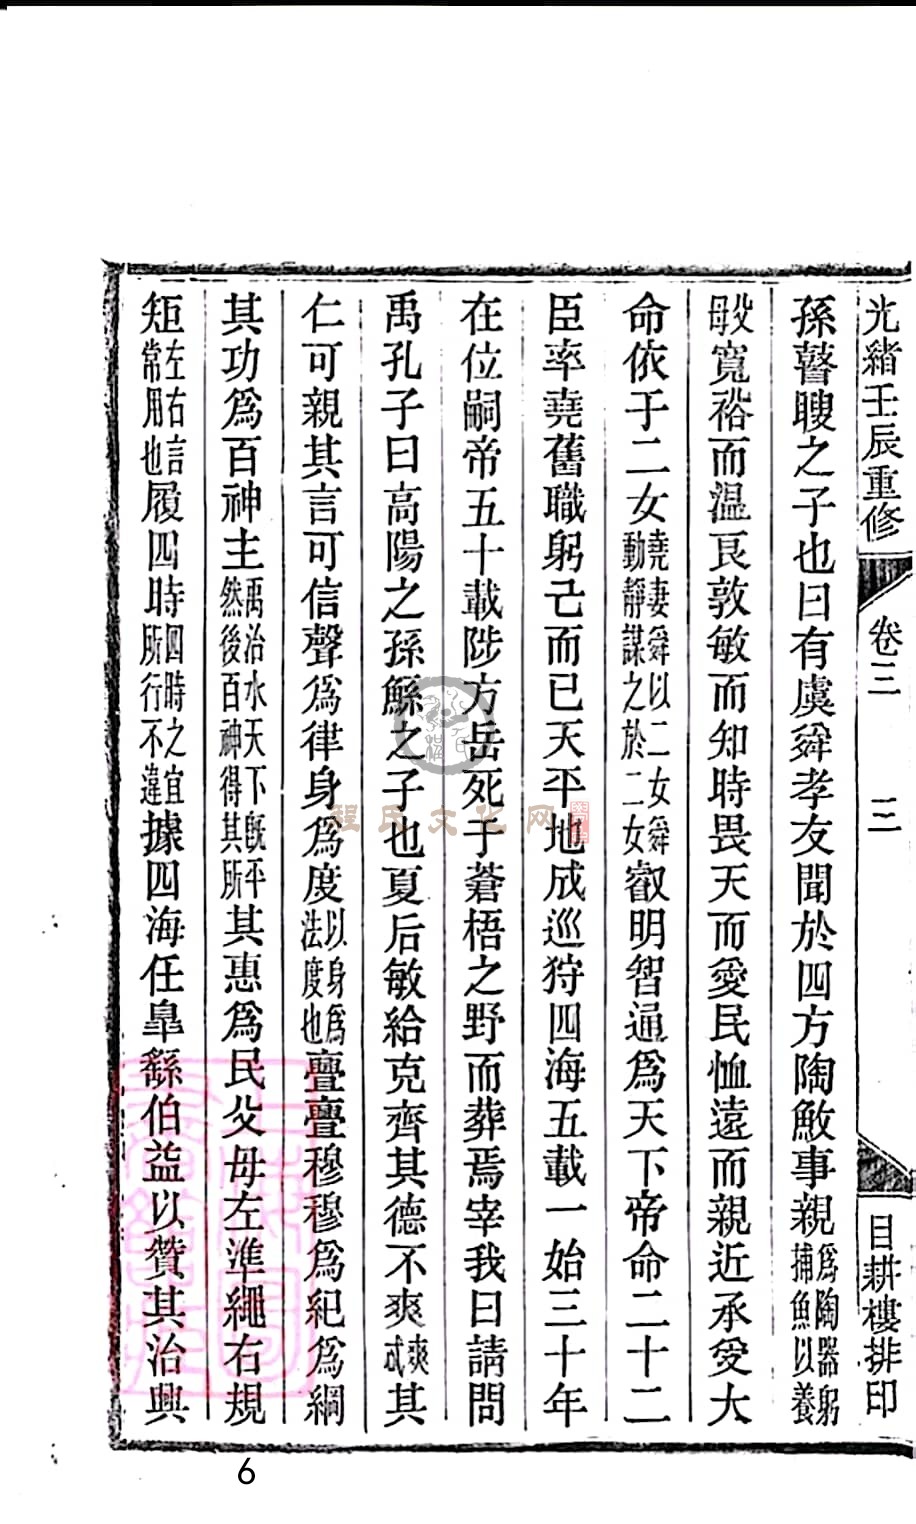 光緒壬辰重修 卷三 三 目耕樓排印
孫瞽瞍之子也曰有虞舜孝友聞於四方陶敏事親為陶器躬捕魚以養
父母寬裕而温良敦敏而知時畏天而愛民恤遠而親近承受大
命依于二女堯妻舜以二女舜動靜謀之於二女叡明智通爲天下帝命二十二
臣率堯舊職躬己而已天平地成巡狩四海五載一始三十年
在位嗣帝五十載陟方岳死于蒼梧之野而葬焉宰我曰請問
禹孔子曰高陽之孫鯀之子也夏后敏給克齊其德不爽爽忒其
仁可親其言可信聲爲律身爲度以身爲法度也亹亹穆穆爲紀爲綱
其功爲百神主禹治水天下既平然後百神得其所其惠爲民父母左準繩右規
矩左右言常用也履四時四時之宜所行不違據四海任臯繇伯益以贊其治興
程氏文化网
6